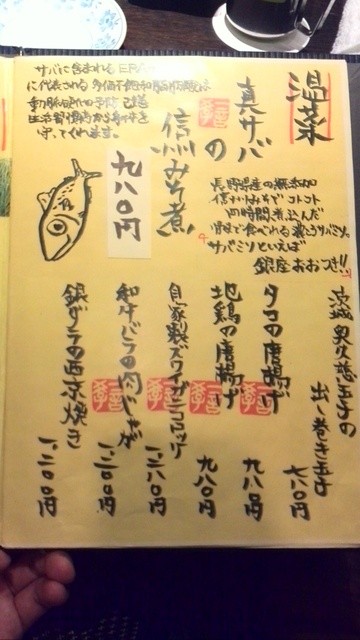 温菜
真サバ
の
信州みそ煮
九八〇円
サバに含まれるEPA
に代表される多価不飽和脂肪酸は
動脈硬化の予防・改善
生活習慣病から身体を
守ってくれます。
長野県産の無添加
信州みそでコトコト
四時間煮込んだ
骨まで食べれる濃こうサバミソ。
サバミソといえば
銀座おおつき!!
茨城奥久慈玉子の
出し巻き玉子
七八〇円
タコの唐揚げ
九八〇円
地鶏の唐揚げ
九八〇円
自家製ズワイガニコロッケ
一、二八〇円
和牛バラの肉じゃが
一、二〇〇円
銀ダラの西京焼き
一、二〇〇円